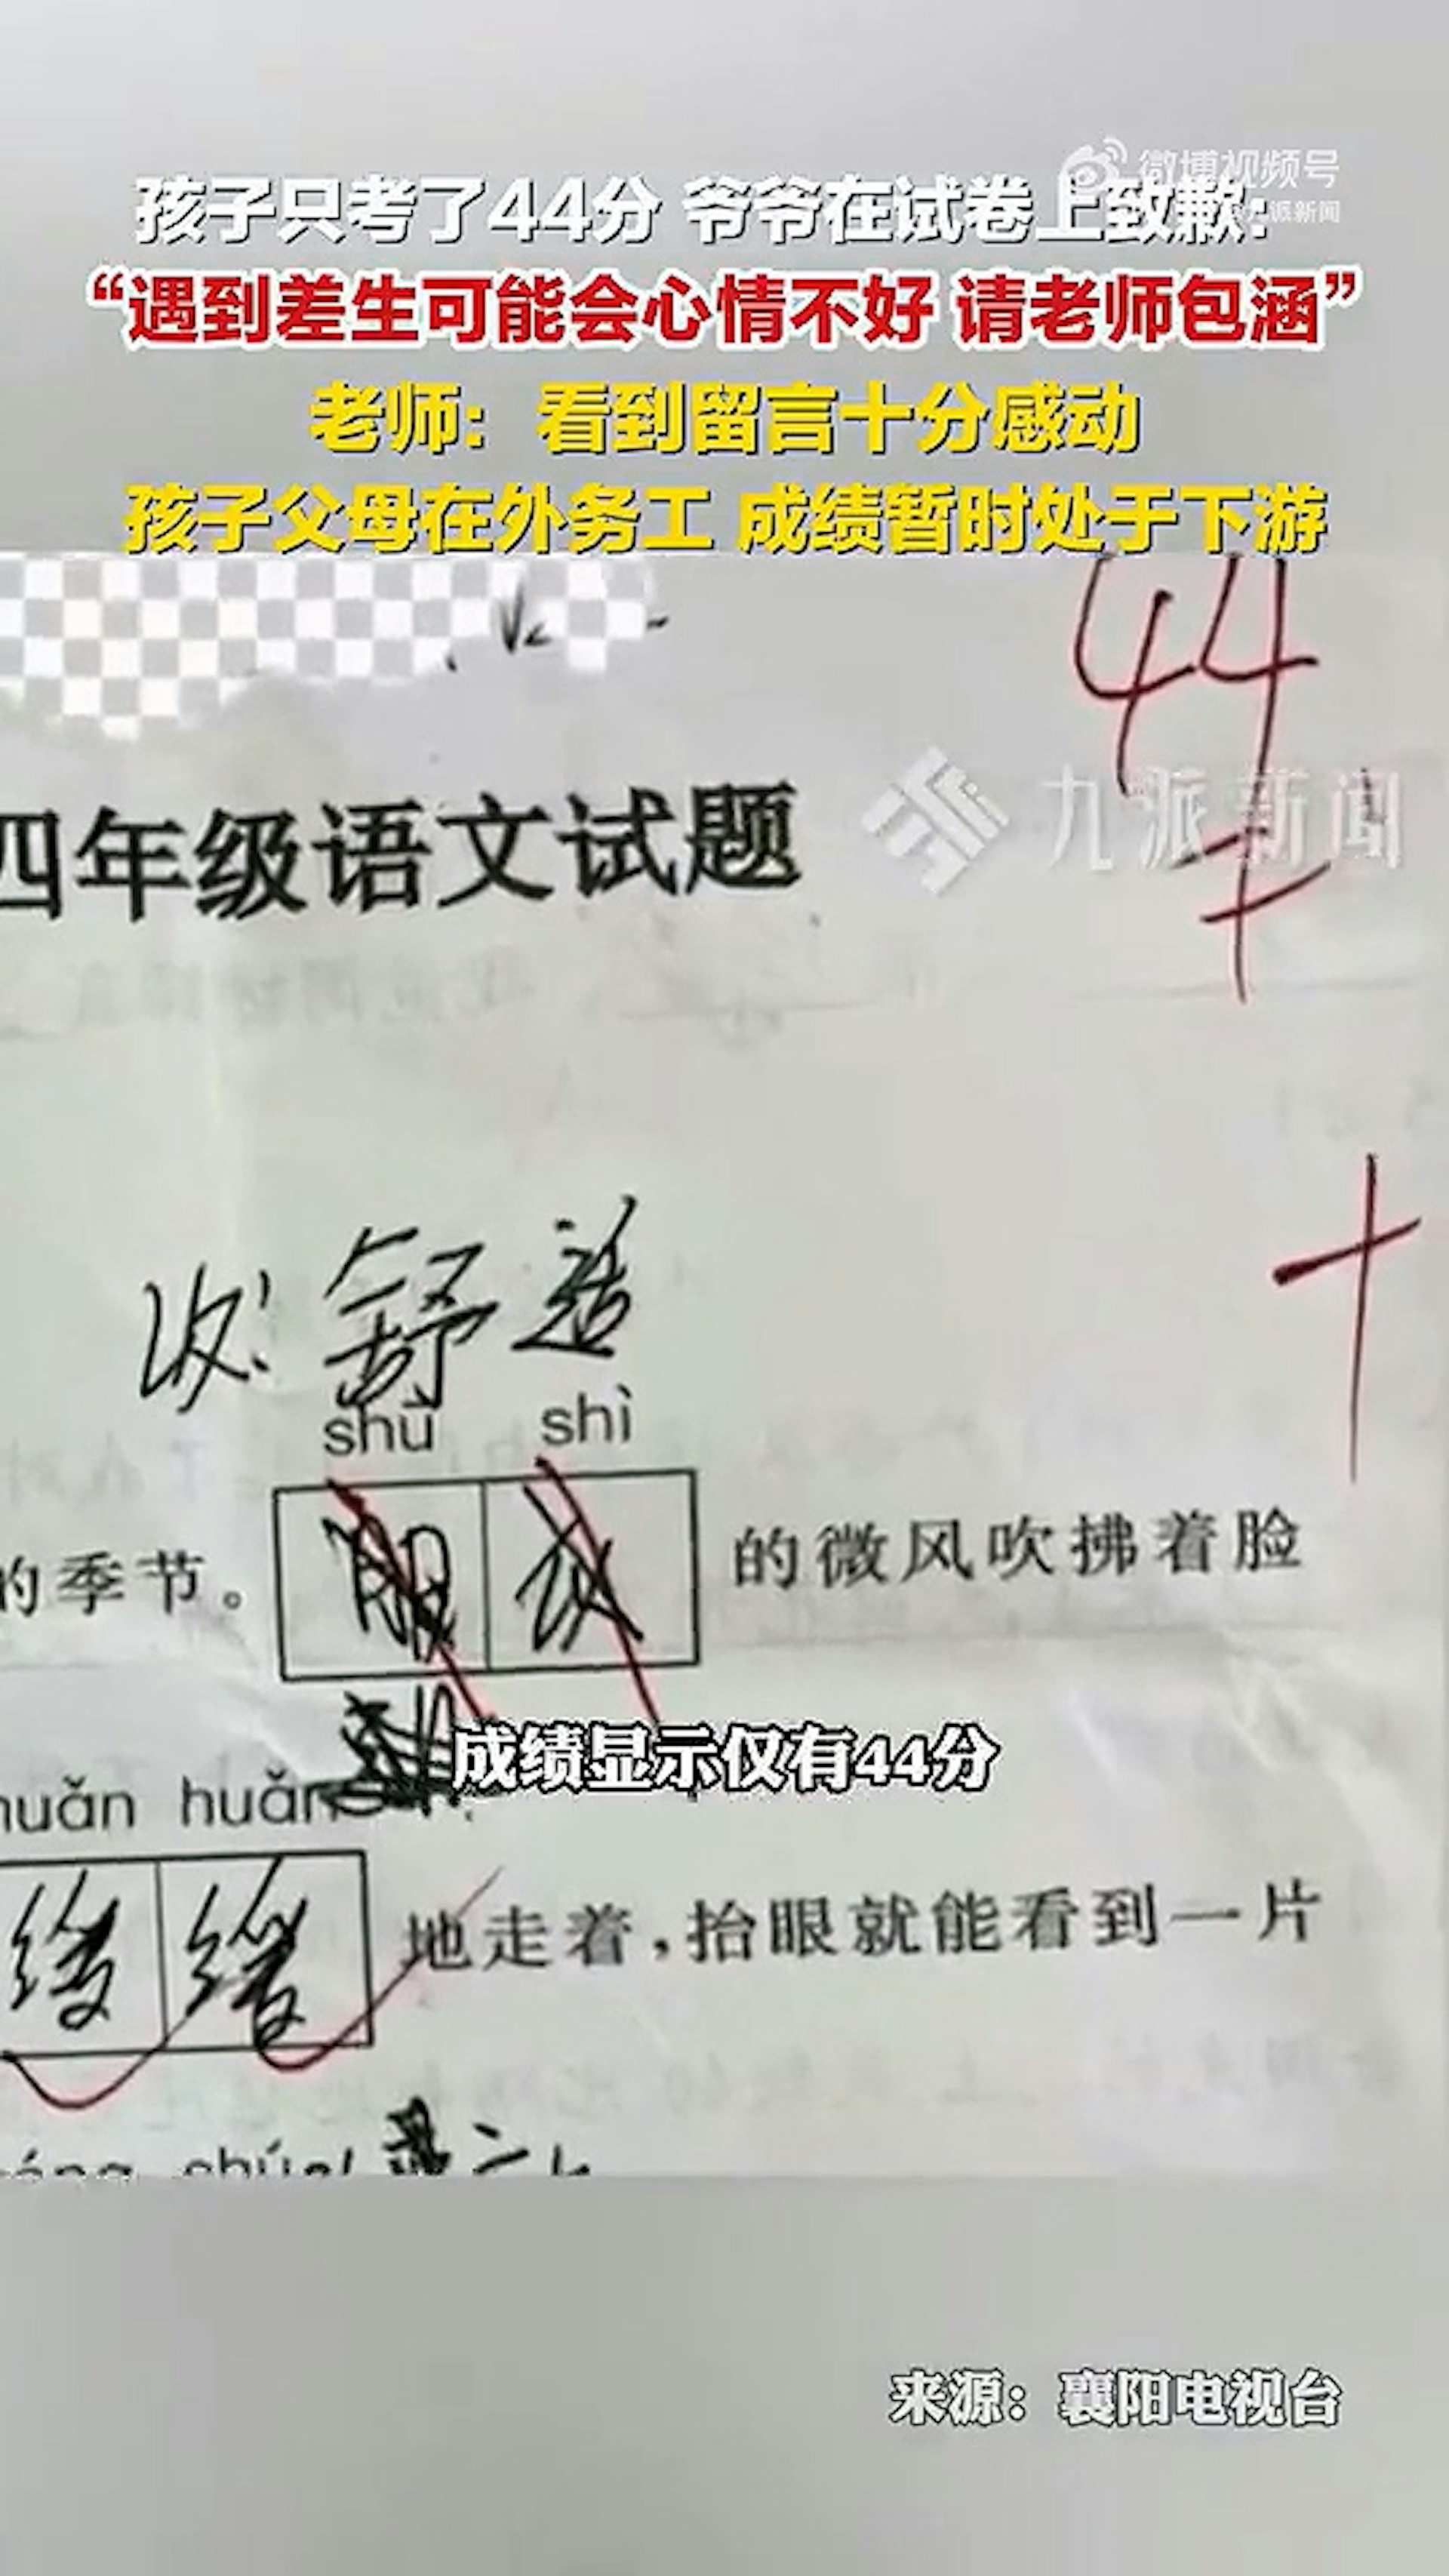 微博视频号
九派新闻
孩子只考了44分 爷爷在试卷上致歉:
“遇到差生可能会心情不好 请老师包涵”
老师：看到留言十分感动
孩子父母在外务工 成绩暂时处于下游
44
四年级语文试题
九派新闻
改: 舒适
shū shì
的季节。 的微风吹拂着脸
成绩显示仅有44分
huǎn huǎn
地走着,抬眼就能看到一片
来源：襄阳电视台